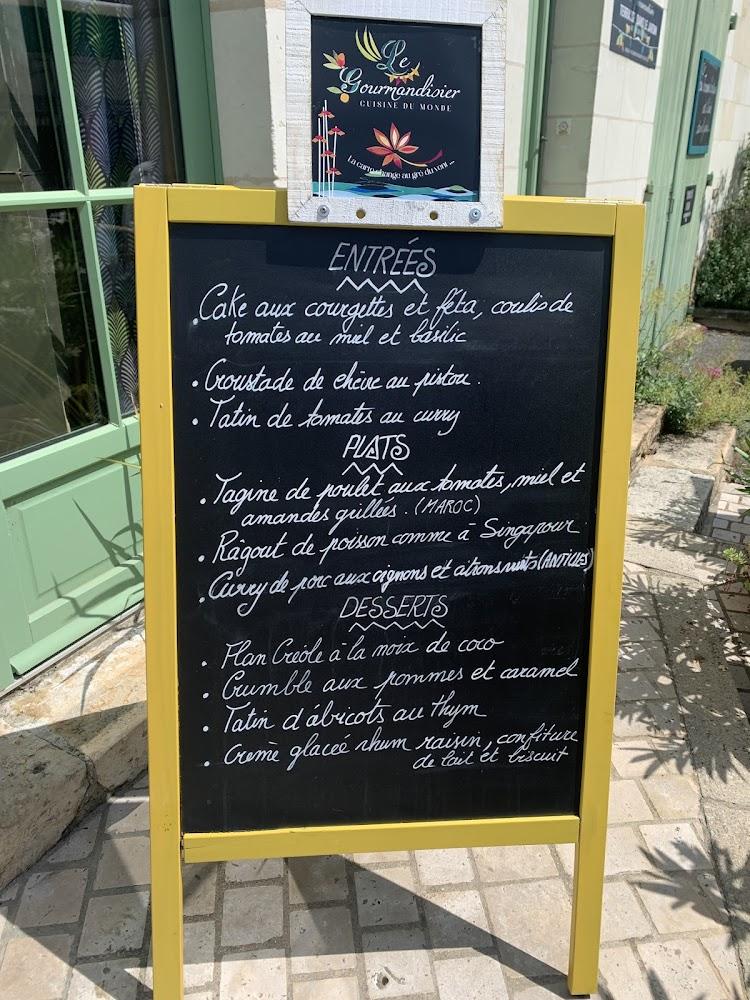 Le
Gourmandisier
CUISINE DU MONDE
La carte change au gré du vent ...
ENTRÉES
. Cake aux courgettes et féta, coulis de
tomates au miel et basilic
. Croustade de chèvre au pistou.
. Tatin de tomates au curry
PLATS
. Tagine de poulet aux tomates, miel et
amandes grillées. (MAROC)
. Râgout de poisson comme à Singapour
. Curry de porc aux oignons et citrons verts (ANTILLES)
DESSERTS
. Flan Créole à la noix de coco
. Crumble aux pommes et caramel
. Tatin d'abricots au thym
. Crème glaceé rhum raisin, confiture
de lait et biscuit